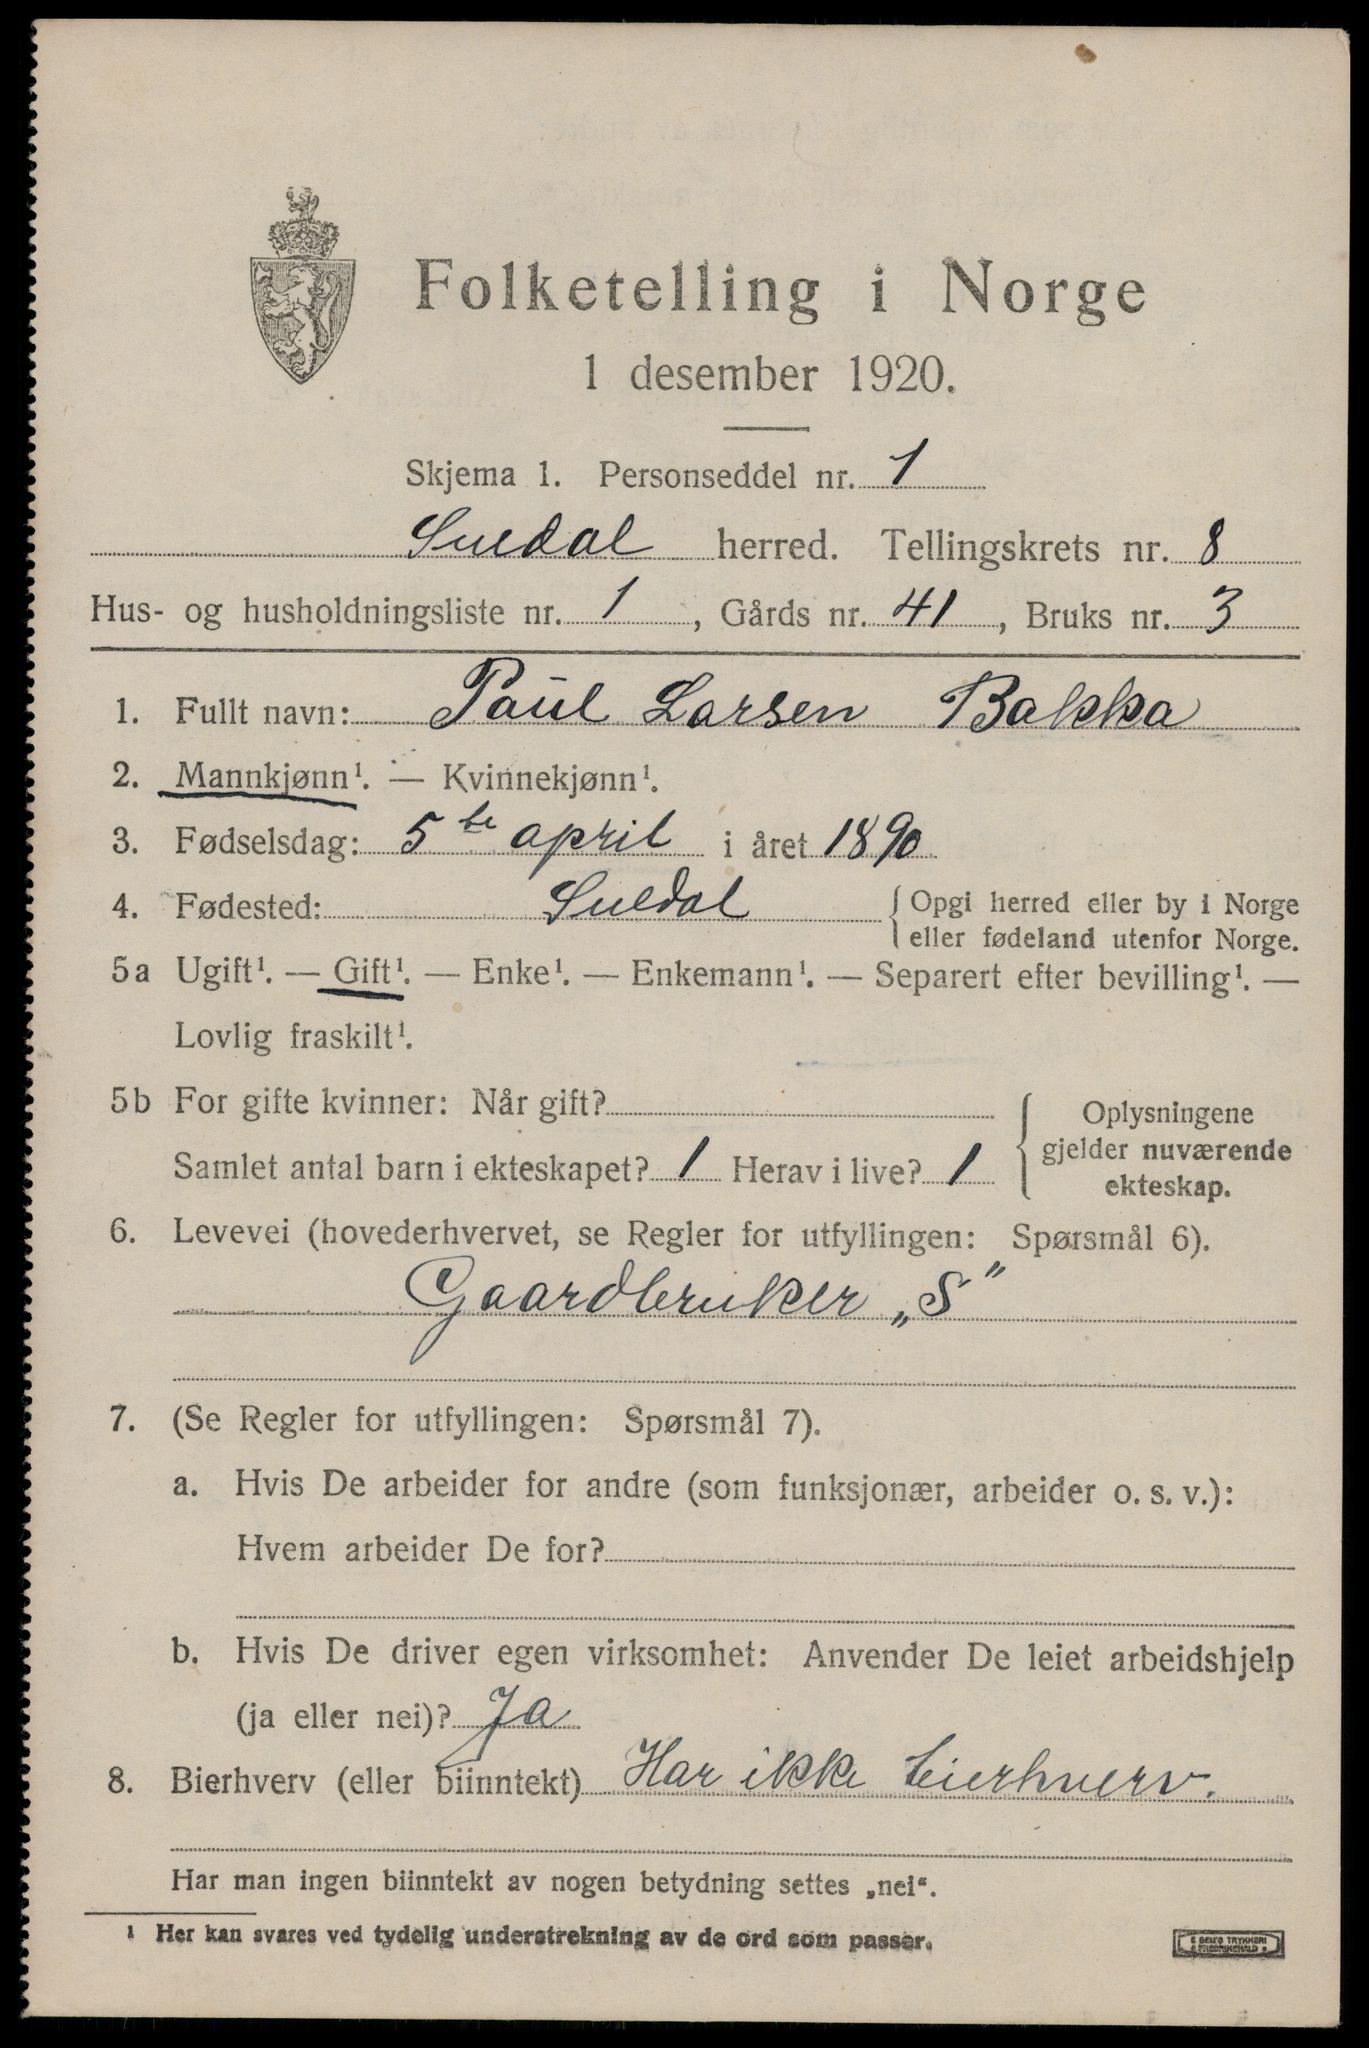 Folketelling i Norge
1 desember 1920.
Skjema 1. Personseddel nr. 1
Suldal herred. Tellingskrets nr. 8
Hus- og husholdningsliste nr. 1, Gårds nr. 41, Bruks nr. 3
1. Fullt navn: Paul Larsen Bakka
2. Mannkjønn¹. — Kvinnekjønn¹.
3. Fødselsdag: 5te april i året 1890
4. Fødested: Suldal { Opgi herred eller by i Norge
eller fødeland utenfor Norge.
5a Ugift¹. — Gift¹. — Enke¹. — Enkemann¹. — Separert efter bevilling¹. —
Lovlig fraskilt¹.
5b For gifte kvinner: Når gift?
Samlet antal barn i ekteskapet? 1 Herav i live? 1
Oplysningene
gjelder nuværende
ekteskap.
6. Levevei (hovederhvervet, se Regler for utfyllingen: Spørsmål 6).
Gaardbruker „S"
7. (Se Regler for utfyllingen: Spørsmål 7).
a. Hvis De arbeider for andre (som funksjonær, arbeider o. s. v.):
Hvem arbeider De for?
b. Hvis De driver egen virksomhet: Anvender De leiet arbeidshjelp
(ja eller nei)? Ja
8. Bierhverv (eller biinntekt) Har ikke bierhverv.
Har man ingen biinntekt av nogen betydning settes „nei“.
¹ Her kan svares ved tydelig understrekning av de ord som passer.
E. SEM'S TRYKKERI
FREDRIKSHALD